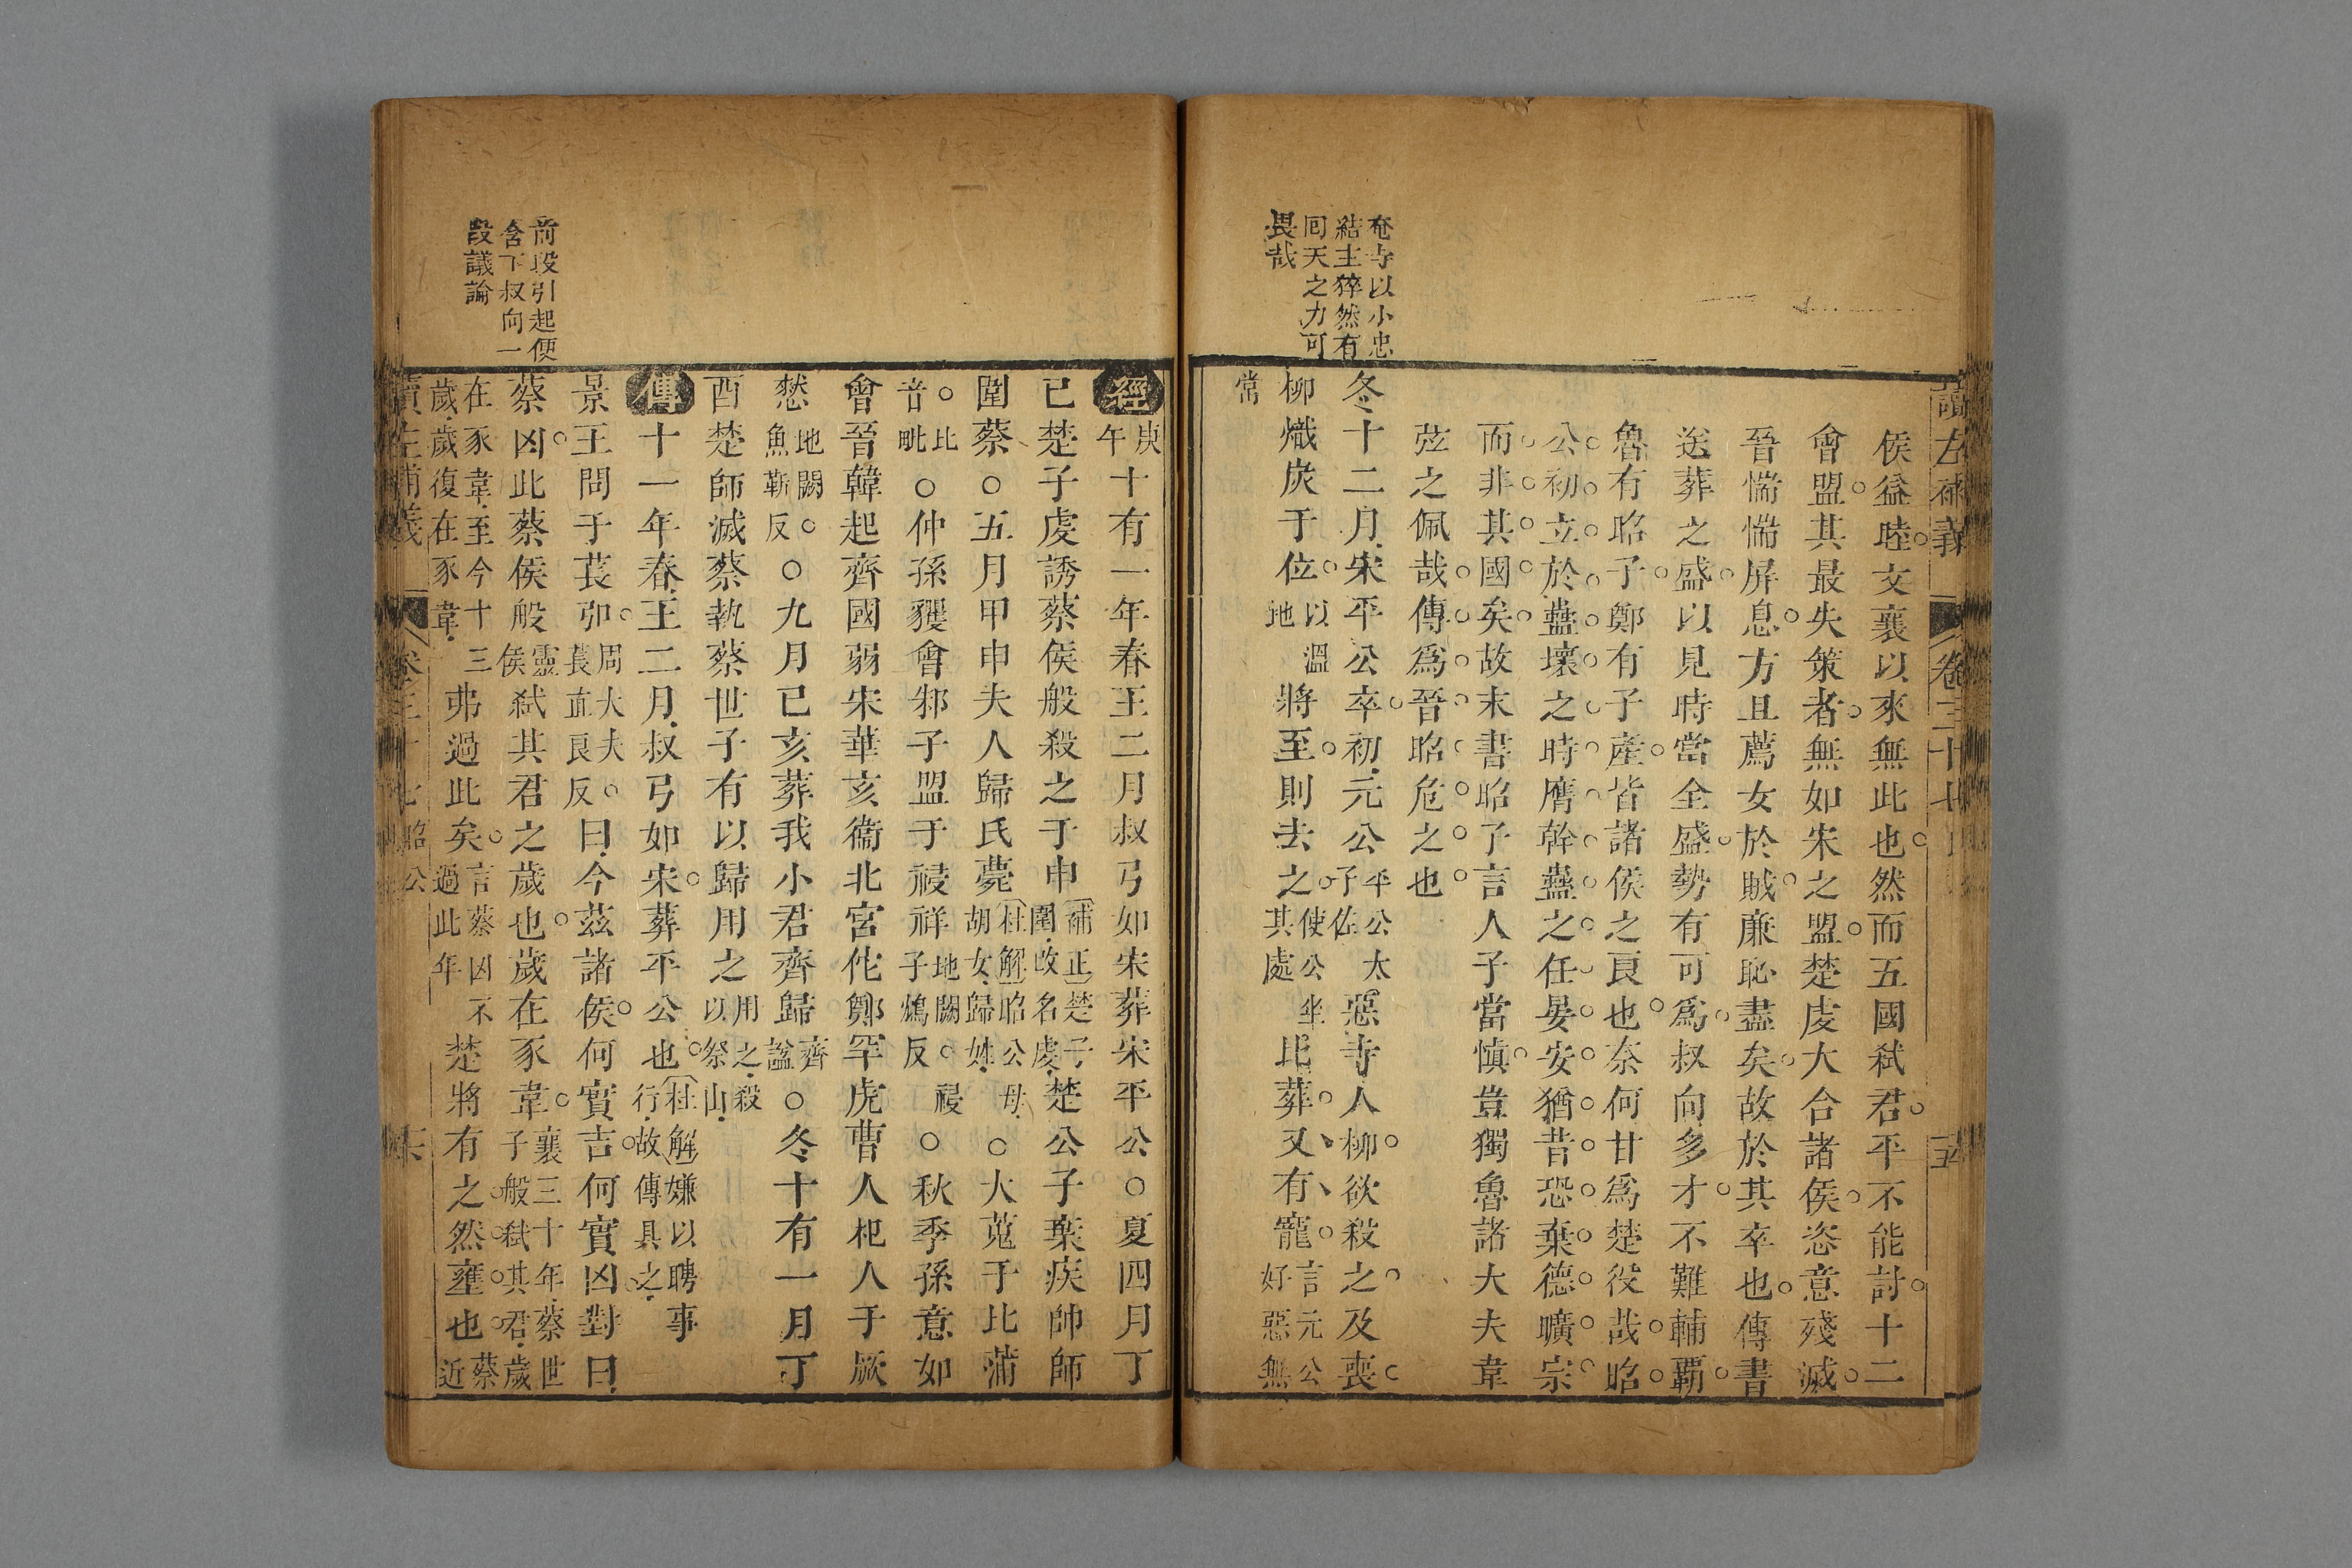 讀左補義
卷三十七
侯益睦文襄以來無此也然而五國弑君平不能討十二
會盟其最失策者無如宋之盟楚虔大合諸侯恣意殘滅
晉惴惴屏息方且薦女於賊廉恥盡矣故於其卒也傳書
送葬之盛以見時當全盛勢有可爲叔向多才不難輔覇
魯有昭子鄭有子產皆諸侯之良也奈何甘爲楚役哉昭
公初立於蠱壞之時膺幹蠱之任晏安猶昔恐棄德曠宗
而非其國矣故末書昭子言人子當慎豈獨魯諸大夫韋
弦之佩哉傳爲晉昭危之也
奄寺以小忠
結主猝然有
回天之力可
畏哉
冬十二月宋平公卒初元公平公太子佐惡寺人柳欲殺之及喪
柳熾炭于位以溫地將至則去之使公坐其處比葬又有寵言元公好惡無
常
經庚午十有一年春王二月叔弓如宋葬宋平公○夏四月丁
巳楚子虔誘蔡侯般殺之于申補正楚子圍改名虔楚公子棄疾帥師
圍蔡○五月甲申夫人歸氏薨杜解昭公母胡女歸姓○大蒐于比蒲
○比音毗○仲孫貜會邾子盟于祲祥地闕○祲子鴆反○秋季孫意如
會晉韓起齊國弱宋華亥衞北宮佗鄭罕虎曹人杞人于厥
憖地闕○魚靳反○九月己亥葬我小君齊歸齊謚○冬十有一月丁
酉楚師滅蔡執蔡世子有以歸用之用之殺以祭山
傳十一年春王二月叔弓如宋葬平公也杜解嫌以聘事行故傳具之
前段引起便
含下叔向一
段議論
景王問于萇弘周大夫○萇直良反曰今茲諸侯何實吉何實凶對曰
蔡凶此蔡侯般靈侯弑其君之歲也歲在豕韋襄三十年蔡世子般弑其君歲
在豕韋至今十三歲歲復在豕韋弗過此矣言蔡凶不過此年楚將有之然壅也蔡近
讀左補義
卷三十七
昭公